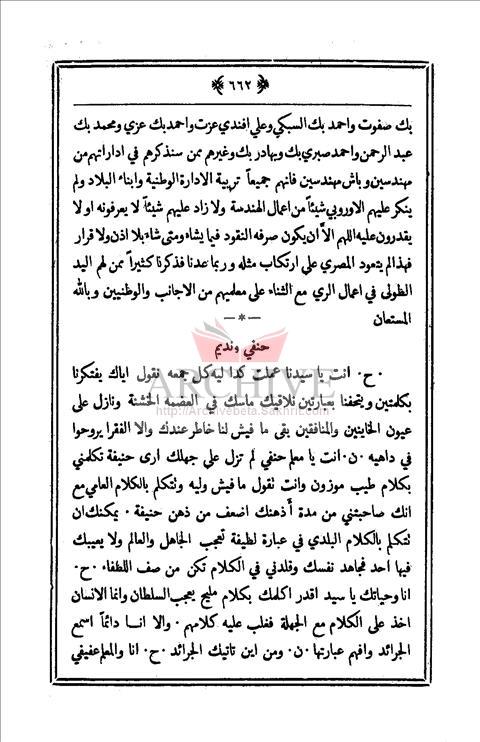 ﴿ ٦٦٢ ﴾
بك صفوت واحمد بك السبكي وعلي افندي عزت واحمد بك عزي ومحمد بك
عبد الرحمن واحمد صبري بك وبهادر بك وغيرهم ممن سنذكرهم في اداراتهم من
مهندسين وباش مهندسين فانهم جميعاً تربية الادارة الوطنية وابناء البلاد ولم
ينكر عليهم الاوروبي شيئاً من اعمال الهندسة ولا زاد عليهم شيئاً لا يعرفونه او لا
يقدرون عليه اللهم الاَّ ان يكون صرفه النقود فيما يشاء ومتى شاء بلا اذن ولا قرار
فهذا لم يتعود المصري على ارتكاب مثله وربما عدنا فذكرنا كثيراً ممن لهم اليد
الطولى في اعمال الري مع الثناء على معلميهم من الاجانب والوطنيين وبالله
المستعان
—*—
حنفي ونديم
ARCHIVE
http://Archivebeta.Sakhrit.com
٠ح٠ انت يا سيدنا عملت كدا ليه كل جمعه نقول اياك يفتكرنا
بكلمتين ويتحفنا بعبارتين نلاقيك ماسك في العضمه الخشنة ونازل على
عيون الخاينين والمنافقين بقى ما فيش لنا خاطر عندك والا الفقرا يروحوا
في داهيه ٠ن٠ انت يا معلم حنفي لم تزل على جهلك ارى حنيفة تكلمني
بكلام طيب موزون وانت تقول ما فيش وليه ونتكلم بالكلام العامي مع
انك صاحبتني من مدة أذهنك اضعف من ذهن حنيفة ٠ يمكنك ان
نتكلم بالكلام البلدي في عبارة لطيفة تعجب الجاهل والعالم ولا يعيبك
فيها احد فجاهد نفسك وقلدني في الكلام تكن من صف اللطفاء ٠ح٠
انا وحياتك يا سيد اقدر اكلمك بكلام مليح يعجب السلطان وانما الانسان
اخذ على الكلام مع الجهلة فغلب عليه كلامهم ٠ والا انا دائماً اسمع
الجرائد وافهم عبارتها ٠ن٠ ومن اين تاتيك الجرائد ٠ح٠ انا والمعلم عفيفي